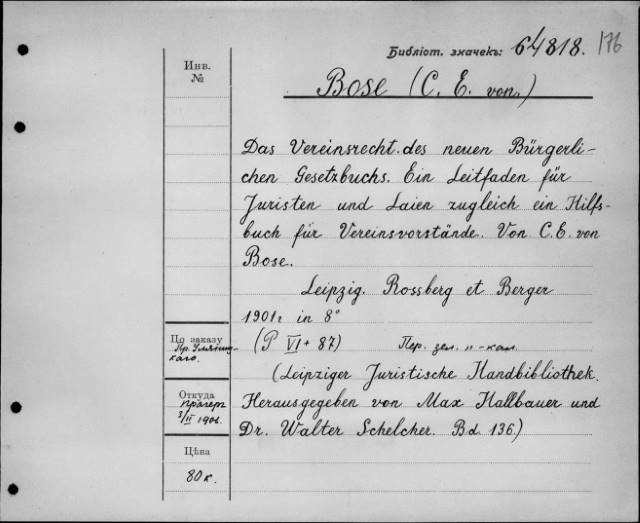 Библіот. значекъ: 64818. 176
Инв.
№
Bose (C. E. von.)
Das Vereinsrecht des neuen Bürgerli-
chen Gesetzbuchs. Ein Leitfaden für
Juristen und Laien zugleich ein Hilfs-
buch für Vereinsvorstände. Von C. E. von
Bose.
Leipzig. Rossberg et Berger
1901г in 8°
(P VI + 87) Пер. зел. п-кал.
(Leipziger Juristische Handbibliothek.
Herausgegeben von Max Hallbauer und
Dr. Walter Schelcher. Bd. 136.)
По заказу
Пр.
каго.
Откуда
Прагеръ
3/II 1901.
Цѣна
80 к.